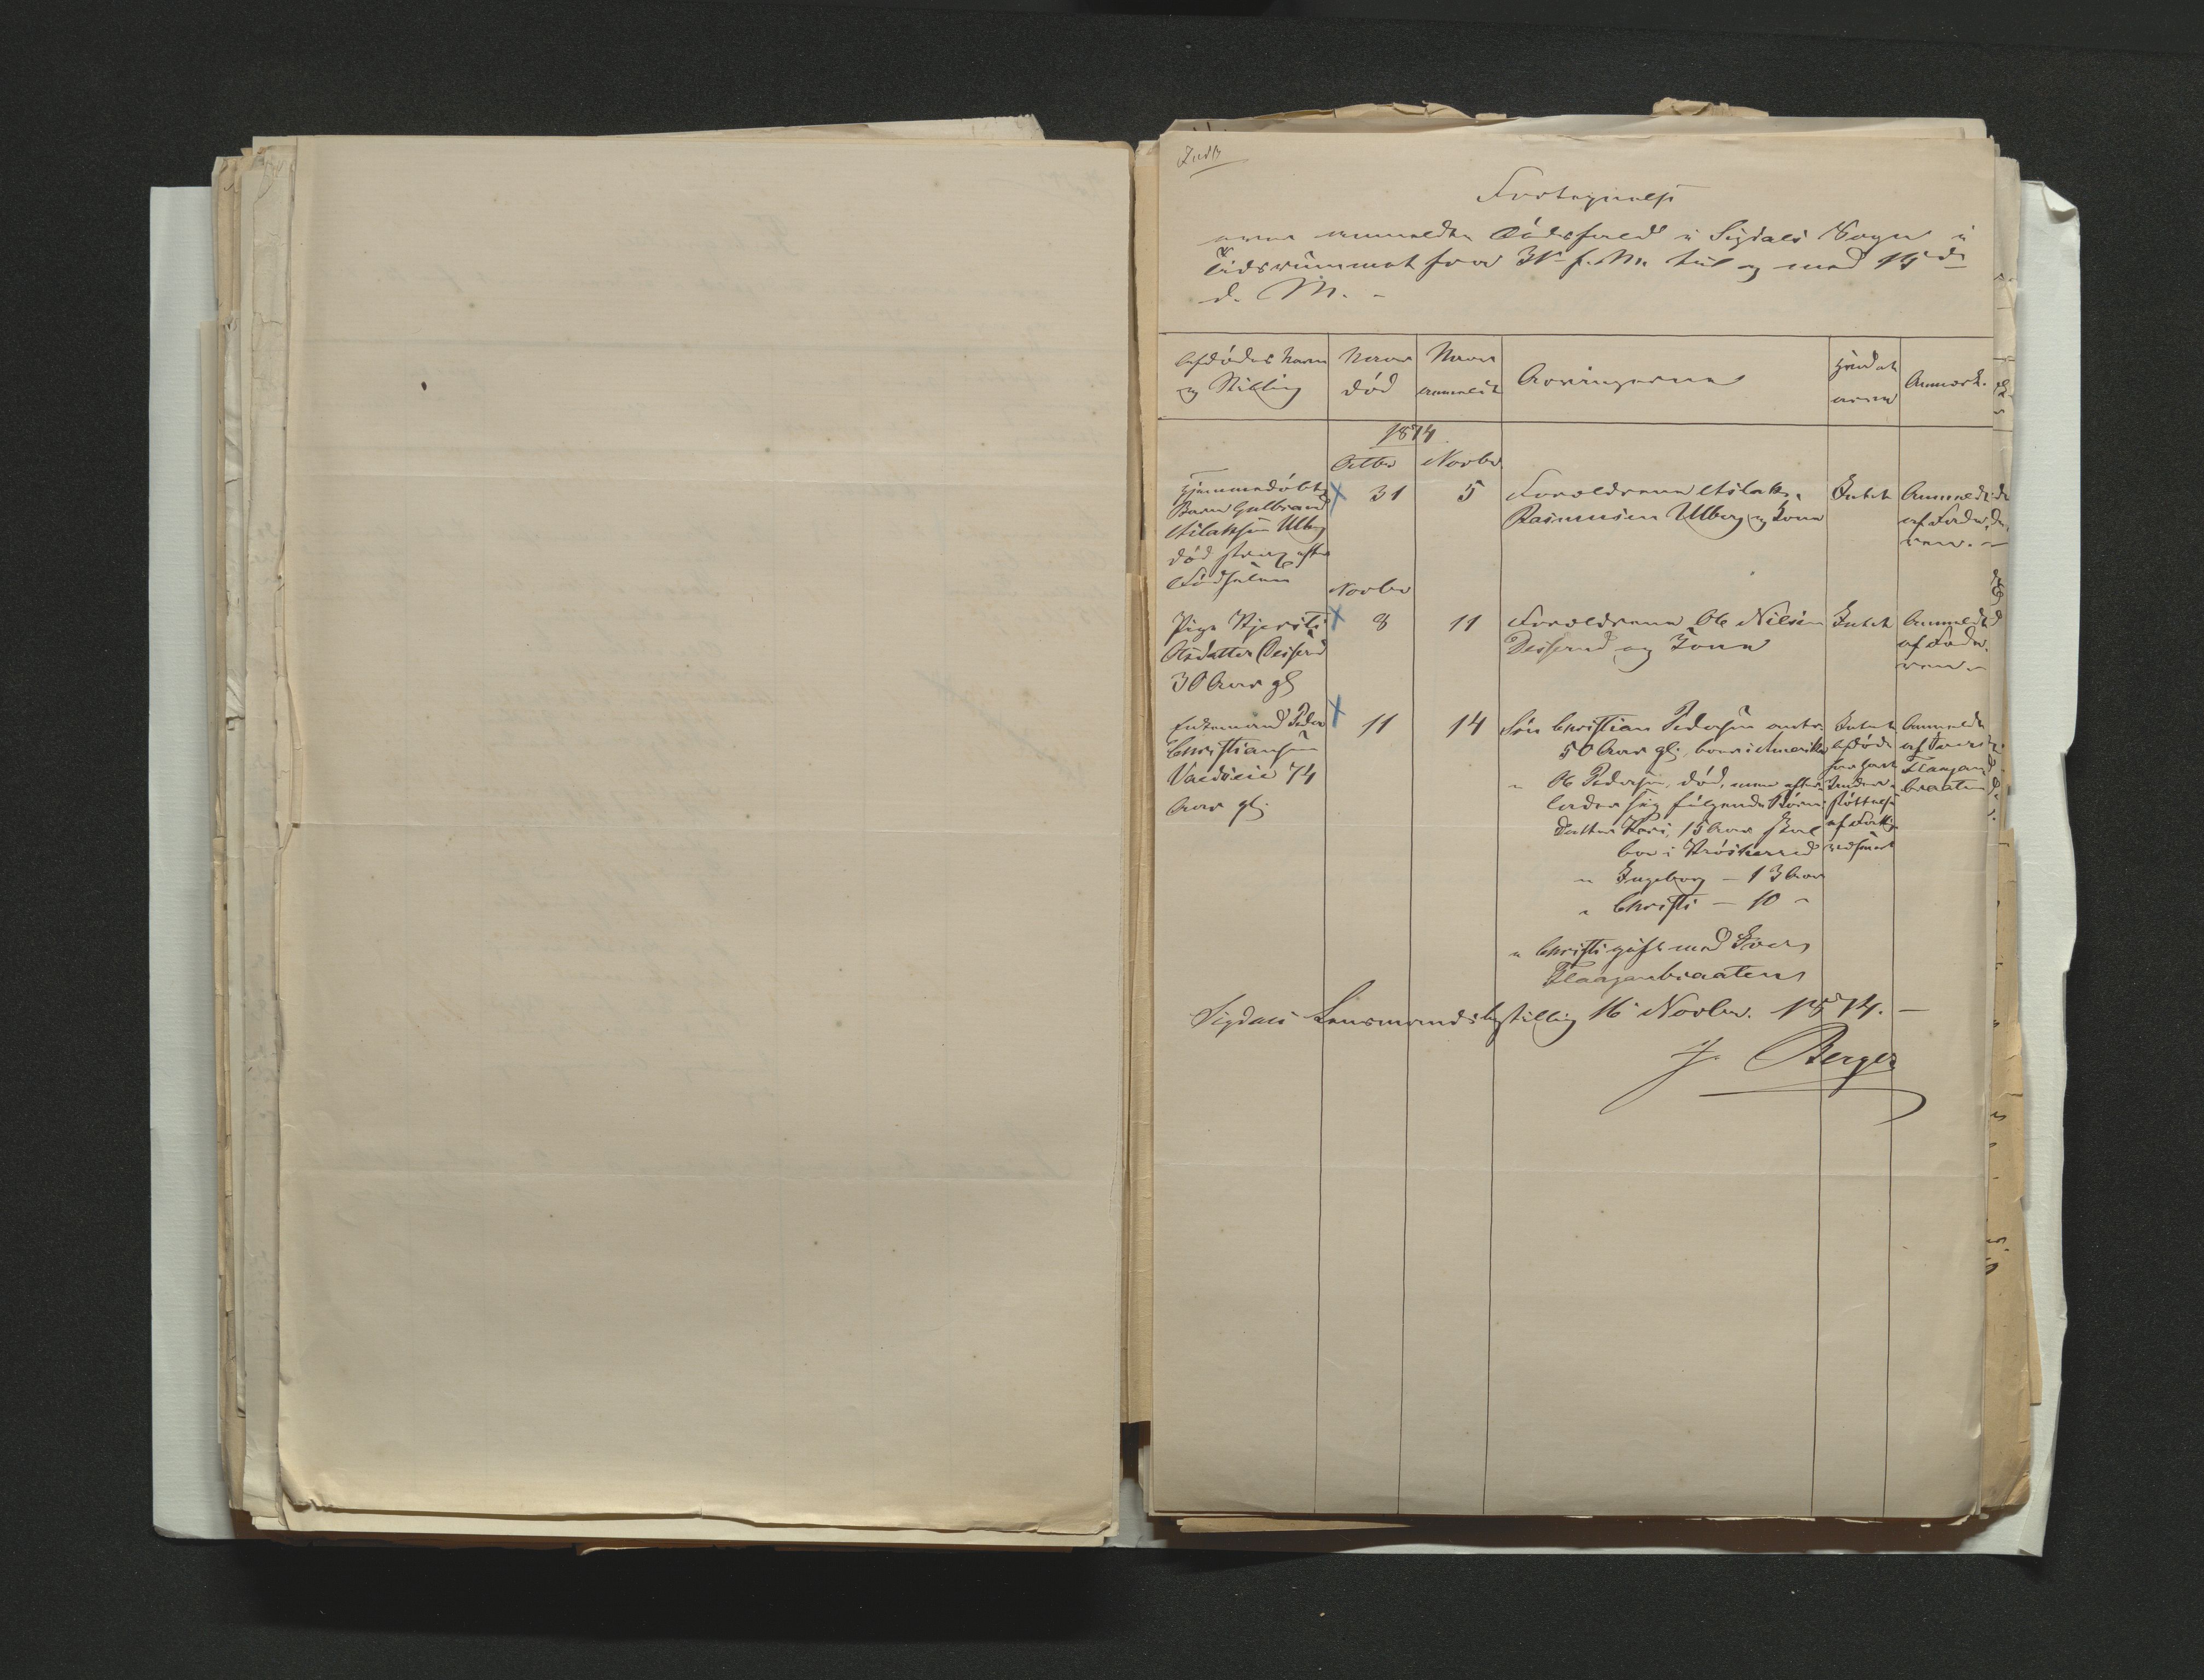 Fortegnelse
over anmeldte Dødsfald i Sigdals Sogn i
Tidsrummet fra 31te f. M. til og med 15de
d. M. -
Afdødes Navn
og Stilling
Naar
død
Naar
anmeldt
Arvingerne
Anmærk.
1874
Octbr
Novbr
Hjemmedøbt
Barn Gulbrand
Aslaksen Ulberg
død strax efter
Fødselen
31
5
Forældrene Aslak
Rasmussen Ulberg og Kone
Intet
Anmeldt
af Fade-
ren. -
Novbr
Pige Kjersti
Olsdatter Deiserud
30 Aar gl
8
11
Forældrene Ole Nilsen
Deiserud og Kone
Intet
Anmeldt
af Fade-
ren -
Enkemand Peder
Christiansen
74
Aar gl.
11
14
Søn Christian Pedersen omtr.
50 Aar gl. boer i Amerika
" Ole Pedersen, død, men efter-
lader sig følgende Børn:
Datter Kari, 15 Aar skal
bo i Krødsherred
" Ingeborg - 13 Aar
" Christi - 10 "
" Christi gift med Iver
Flaaganbraaten
Intet
Afdøde
har havt
Under-
støttelse
af Fattig-
væsenet
Anmeldt
af Iver
Flaagan-
braaten
Sigdals Lensmandsbestilling 16 Novbr. 1874. -
J. Berger